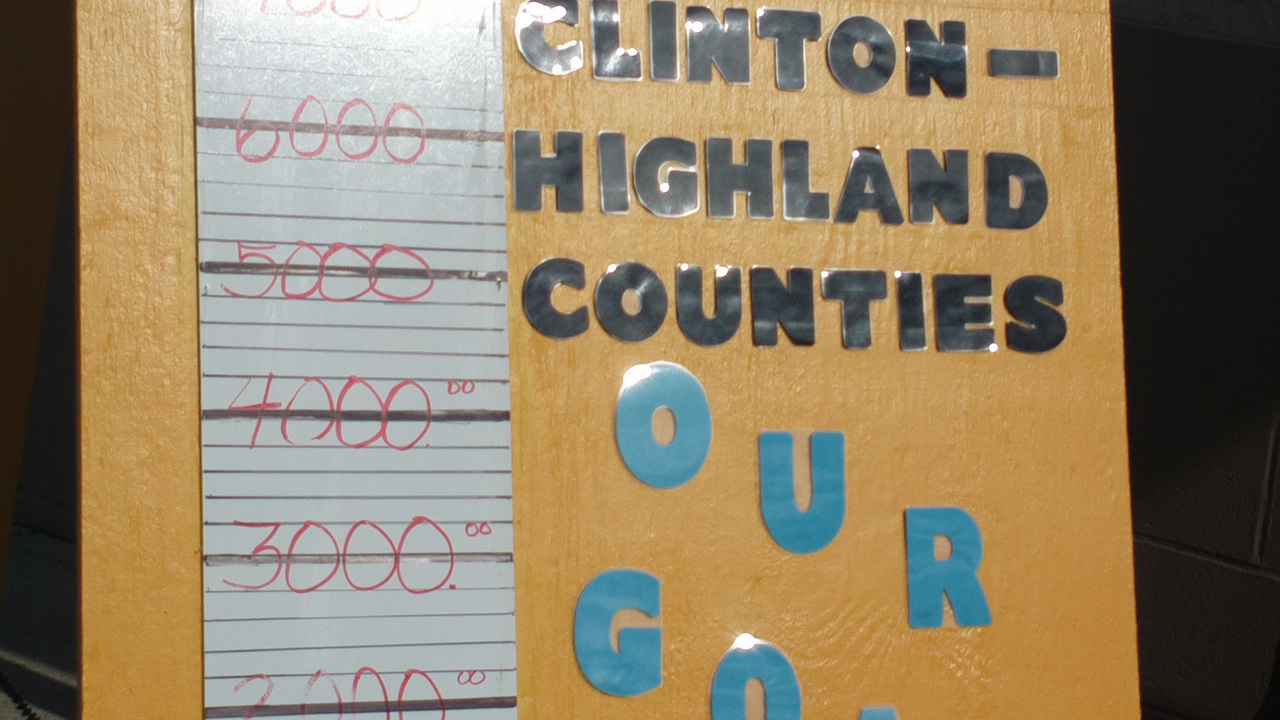 CLINTON-
HIGHLAND
COUNTIES
OUR
6000
5000
4000.00
3000.00
2000 00